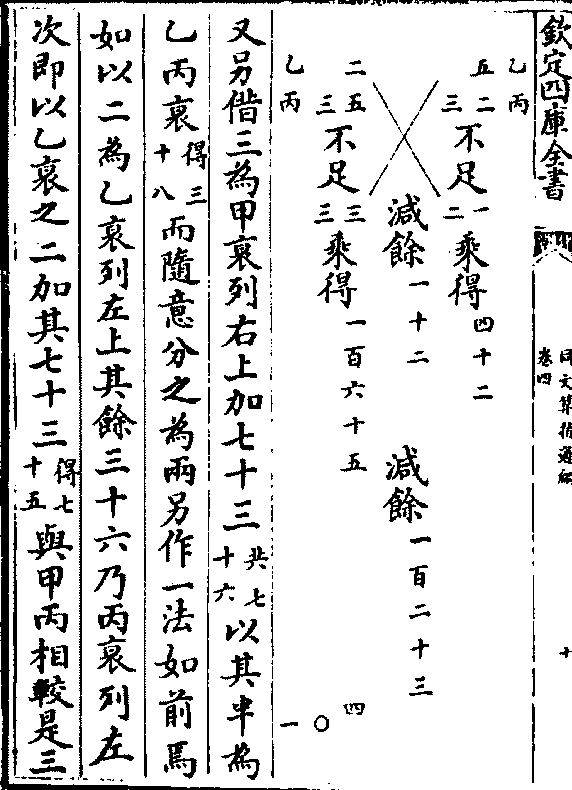 欽定四庫全書
同文算指通編
卷四
十
乙丙
五二
三
不足
一
二
乘得
四十二
減餘
一十二
減餘
一百二十三
二五
三
不足
三
三
乘得
一百六十五
乙丙
四
〇
一
又另借三為甲衰列右上加七十三共七十六以其半為
乙丙衰得三十八而隨意分之為兩另作一法如前焉
如以二為乙衰列左上其餘三十六乃丙衰列左
次即以乙衰之二加其七十三得七十五與甲丙相較是三